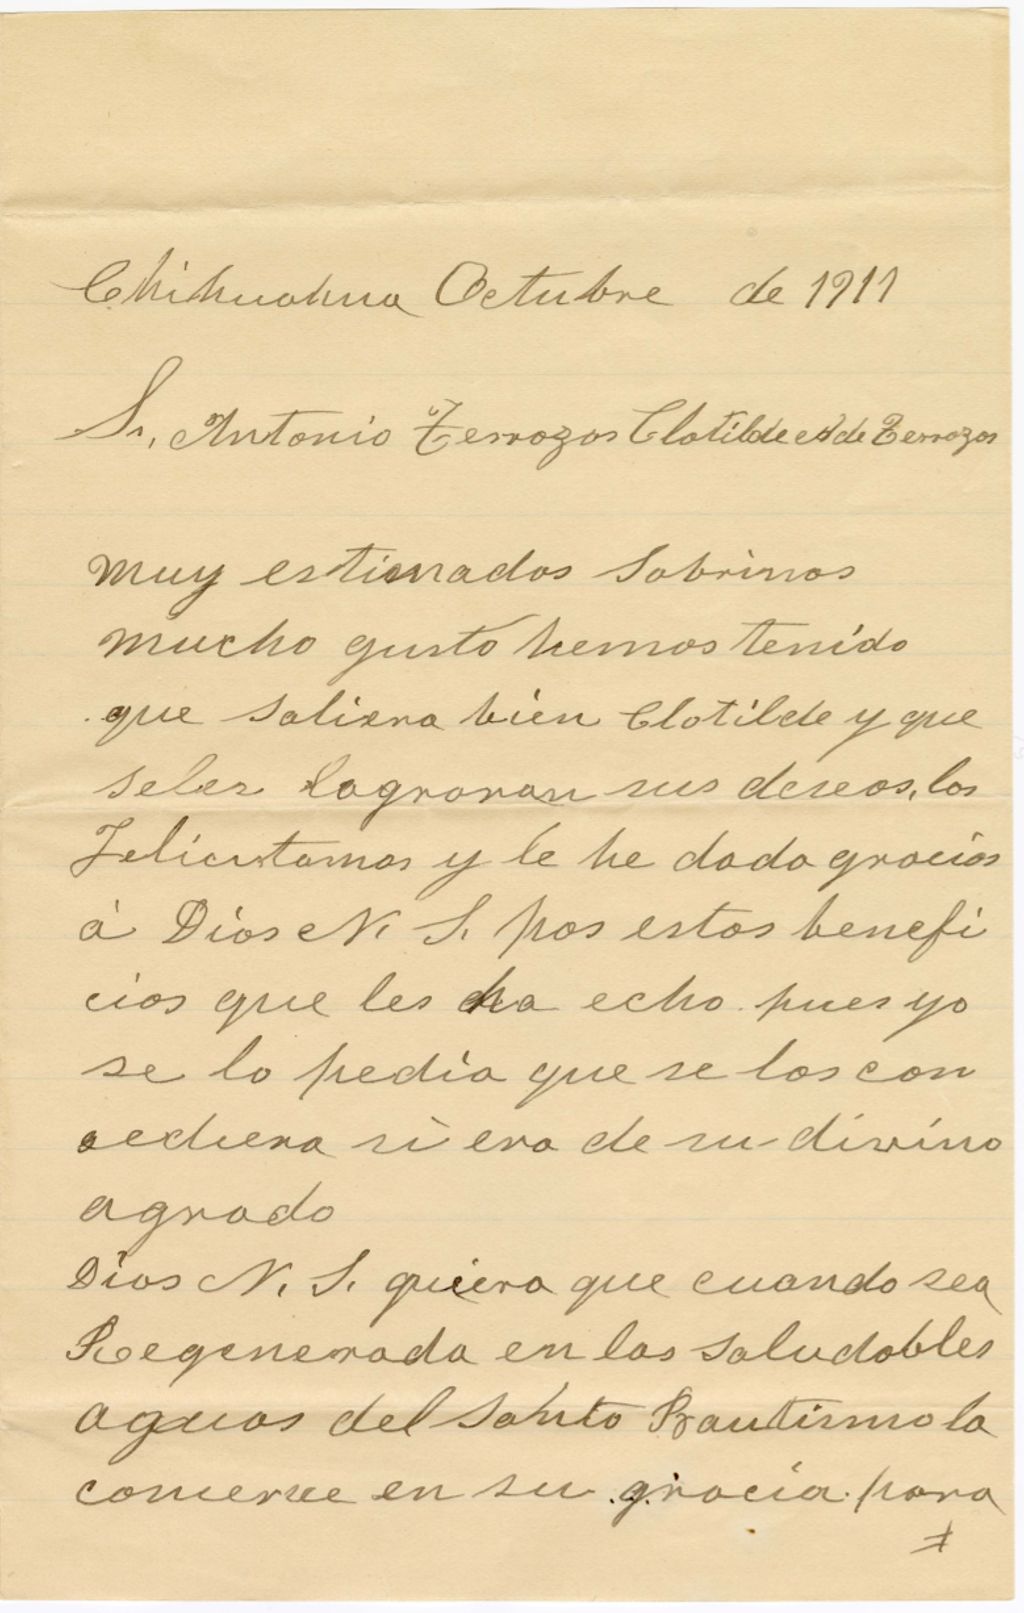 Chihuahua Octubre de 1911
Sr. Antonio Terrazas Clotilde de Terrazas
Muy estimados sobrinos
mucho gusto hemos tenido
que saliera bien Clotilde y que
seles lograran sus deseos, los
Felicitamos y le he dado gracias
á Dios N. S. por estos benefi
cios que les ha echo pues yo
se lo pedia que se los con
cediera si era de su divino
agrado
Dios N. S. quiera que cuando sea
Regenerada en las saludables
aguas del Santo Bautismo la
conserve en su gracia para